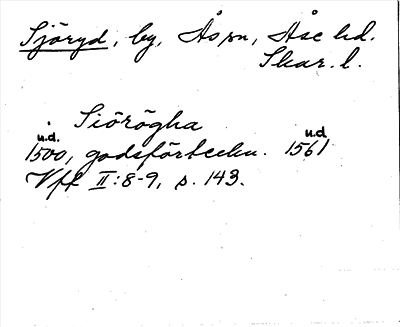 Sjöryd, by, Ås sn, Åse hd.
Skar. l.
Siörögha
u.d. u.d
1500, godsförteckn. 1561
Vff II:8-9, s. 143.